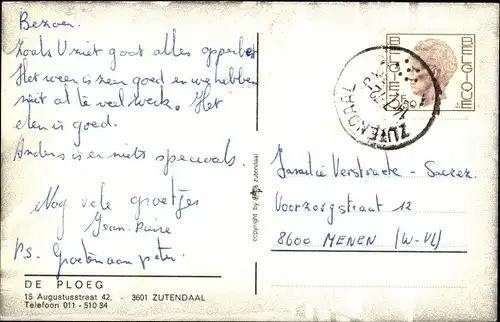 Bezoen.
Zoals U ziet gaat alles opperbest
Het weer is zeer goed en we hebben
niet al te veel werk. Het
eten is goed.
Anders is er niets speciaals.
Nog vele groetjes
Jean-Pierre
P.S. Groeten aan peter.
DE PLOEG
15 Augustusstraat 42. - 3601 ZUTENDAAL
Telefoon 011 - 510 34
copyright by zutendaal
BELGIE
BELGIQUE
ZUTENDAAL
Familie Verstraete -
Voorzorgstraat 12
8600 MENEN (W-Vl)